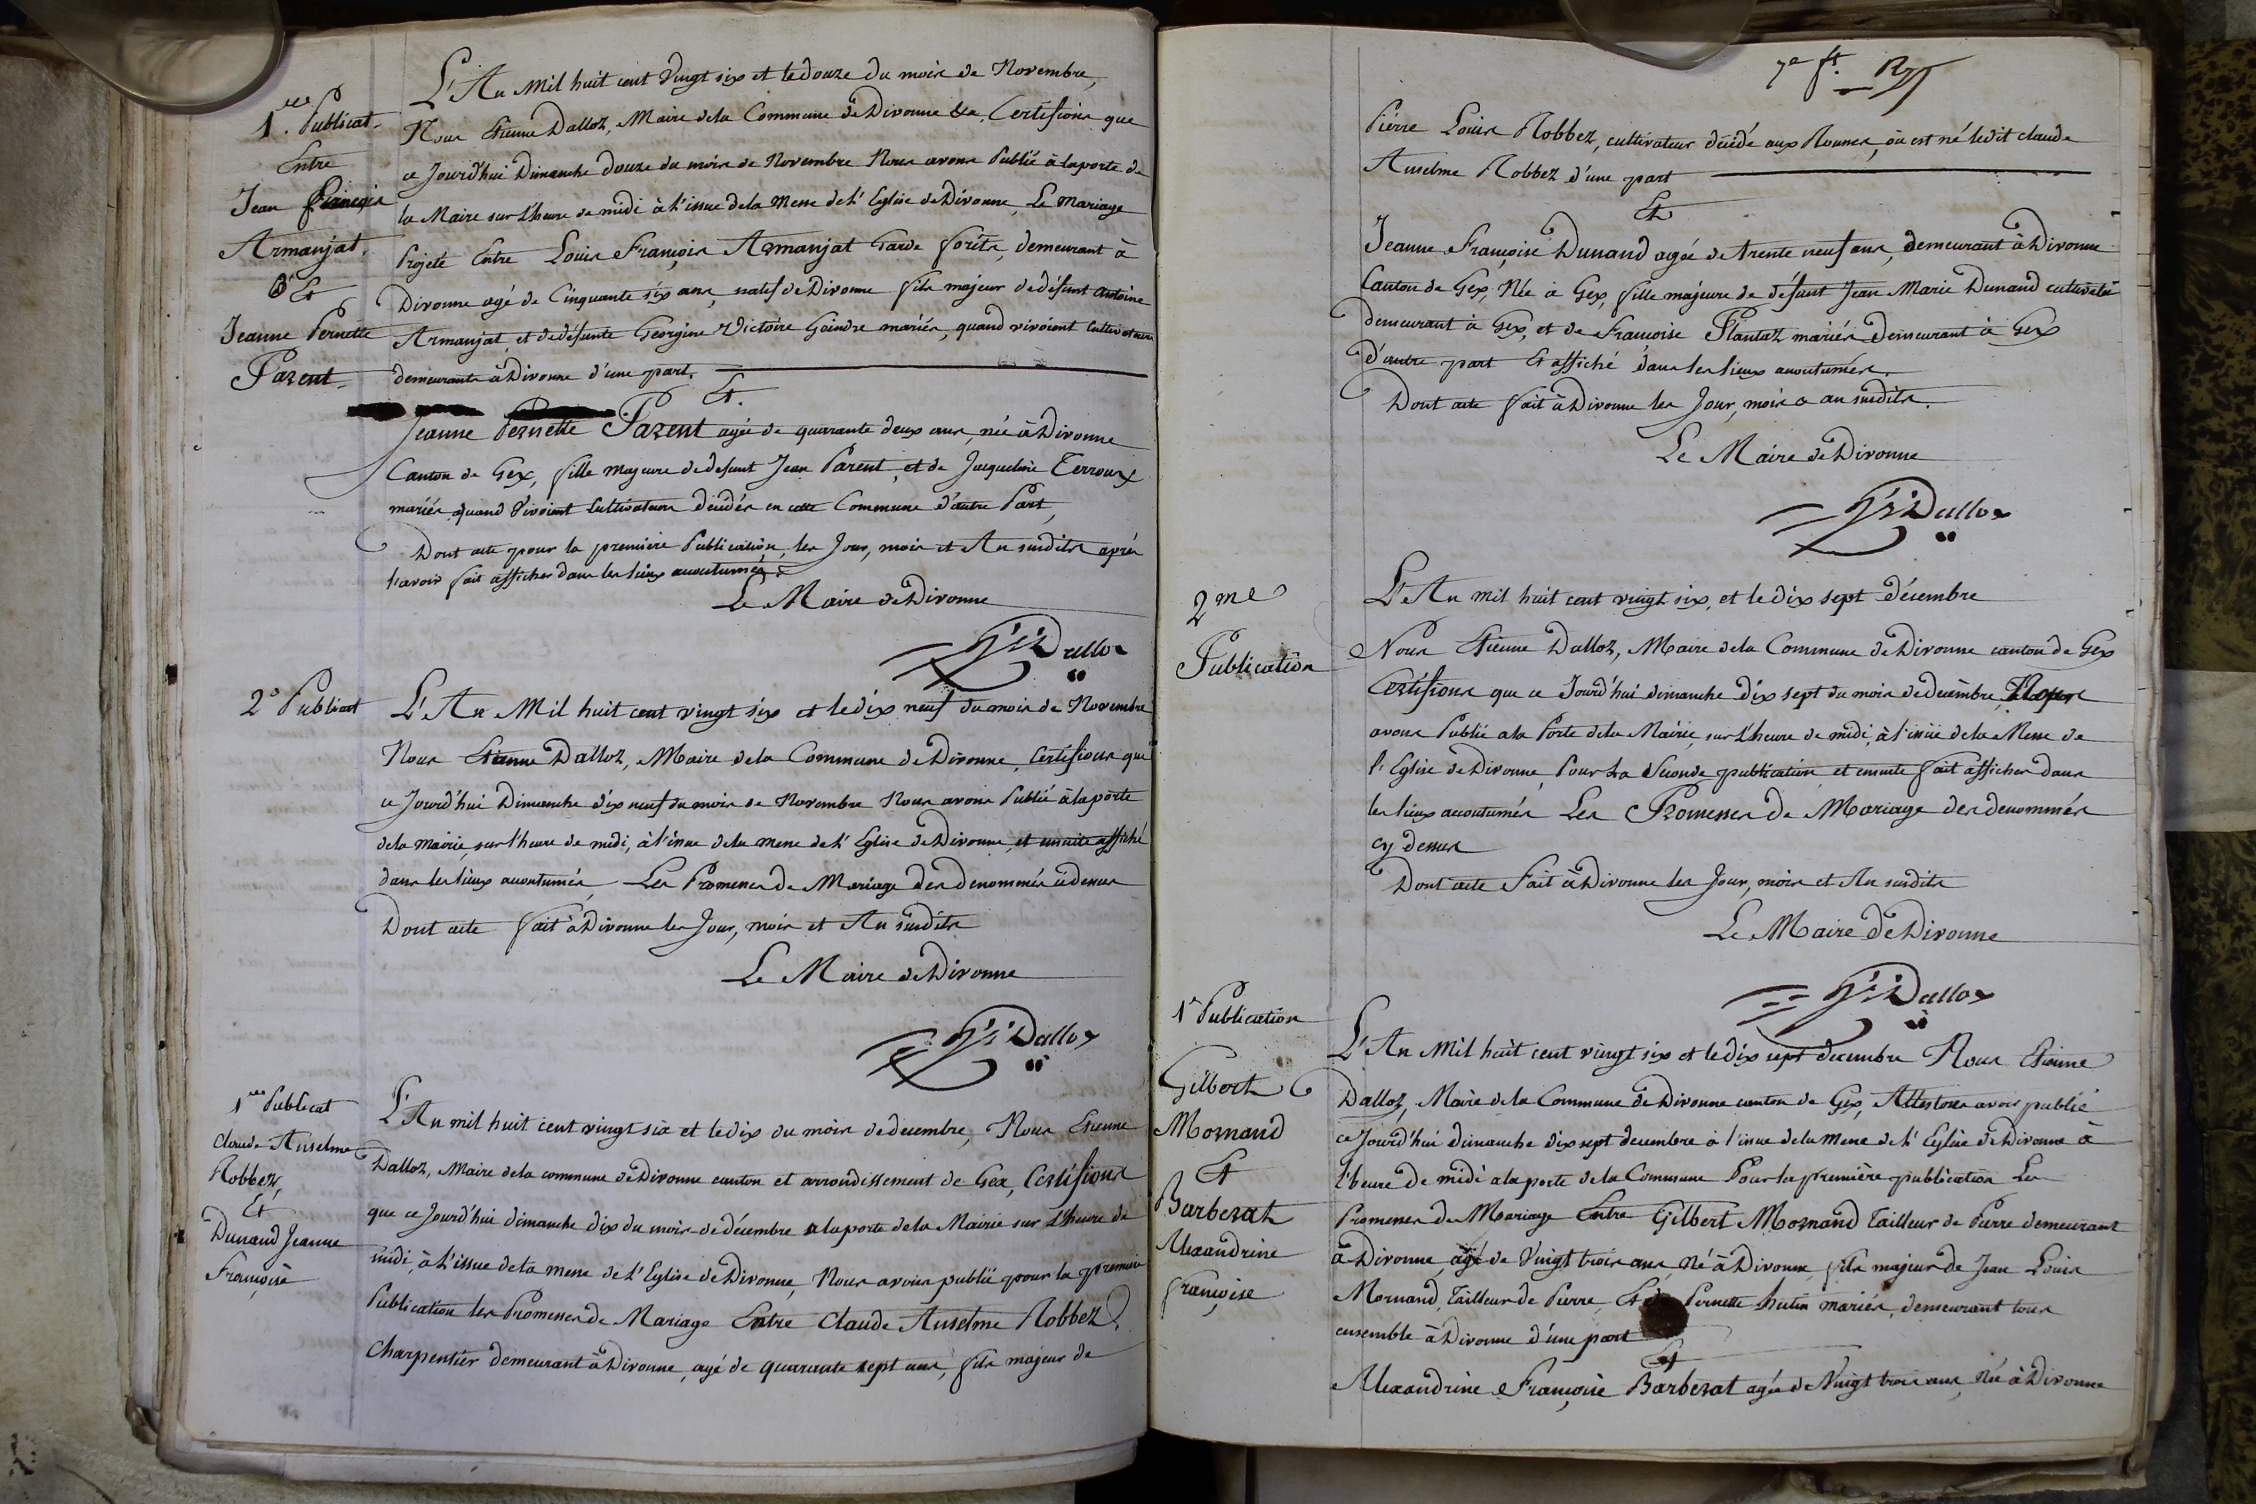 1.ere Publicat.
Entre
Jean François
Armanjat.
Et
Jeanne Pernette
Parent.
L'An Mil huit cent vingt six et le douze du mois de Novembre,
Nous Etienne Dalloz, Maire de la Commune de Divonne &a. Certifions que
ce Jourd'hui Dimanche douze du mois de Novembre Nous avons Publié à la porte de
la Maire sur l'heure de midi à l'issue de la Messe de l'Eglise de Divonne, Le Mariage
Projeté Entre Louis François Armanjat Garde forêts, demeurant à
Divonne agé de Cinquante six ans, natif de Divonne fils majeur de défunt Antoine
Armanjat, et de défunte Georgine Victoire Goindre mariés, quand vivoient Cultivateurs
demeurants à Divonne d'une part.
Et.
Jeanne Pernette Parent agée de quarante deux ans, née à Divonne
Canton de Gex, fille majeure de defunt Jean Parent, et de Jacqueline Terroux
mariés quand Vivoient Cultivateurs décédés en cette Commune d'autre Part,
Dont acte pour la premiere Publication, les Jour, mois et An susdits après
l'avoir fait afficher dans les lieux accoutumés
Le Maire de Divonne
Dalloz
2.e Publicat
L'An Mil huit cent vingt six et le dix neuf du mois de Novembre
Nous Etienne Dalloz, Maire de la Commune de Divonne, Certifions que
ce Jourd'hui Dimanche dix neuf du mois de Novembre Nous avons Publié à la porte
de la mairie, sur l'heure de midi, à l'issue de la messe de l'Eglise de Divonne, et ensuite affiché
dans les lieux accoutumés, Les Promesses de Mariage des denommés ci dessus
Dont acte fait à Divonne les Jour, mois et An susdits
Le Maire de Divonne
Dalloz
1ere Publicat
Claude Anselme
Robbez,
Et
Dunand Jeanne
Françoise
L'An mil huit cent vingt six et le dix du mois de decembre, Nous Etienne
Dalloz, Maire de la commune de Divonne canton et arrondissement de Gex, Certifions
que ce Jourd'hui dimanche dix du mois de décembre a la porte de la Mairie sur L'heure de
midi, à l'issue de la messe de l'Eglise de Divonne, Nous avons publié pour la premiere
Publication les Promesses de Mariage Entre Claude Anselme Robbez,
Charpentier demeurant à Divonne, agé de quarante sept ans, fils majeur de
7e ft.
Pierre Louis Robbez, cultivateur décédé aux Rousses, où est né ledit claude
Anselme Robbez d'une part
Et
Jeanne Françoise Dunand agée de trente neuf ans, demeurant à Divonne
Canton de Gex, Née à Gex, fille majeure de défunt Jean Marie Dunand cultivateur
demeurant à Gex, et de Françoise Plantaz mariés demeurant à Gex
d'autre part Et affiché dans les lieux accoutumés.
Dont acte fait à Divonne les Jour, mois & an susdits.
Le Maire de Divonne
Dalloz
2me
Publication
L'An mil huit cent vingt six, et le dix sept décembre
Nous Etienne Dalloz, Maire de la Commune de Divonne canton de Gex
Certifions que ce Jourd'hui dimanche dix sept du mois de decembre, Nous
avons Publié a la Porte de la Mairie, sur l'heure de midi, à l'issüe de la Messe de
l'Eglise de Divonne, Pour La Seconde publication, et ensuite fait afficher dans
les lieux accoutumés Les Promesses de Mariage des denommés
cy dessus
Dont acte Fait à Divonne les Jour, mois et An susdits
Le Maire de Divonne
Dalloz
1e Publication
Gilbert
Mornand
Et
Barbezat
Alexandrine
françoise
L'An Mil huit cent vingt six et le dix sept decembre Nous Etienne
Dalloz, Maire de la Commune de Divonne canton de Gex, Attestons avoir publié
ce Jourd'hui dimanche dix sept decembre à l'issue de la messe de l'Eglise de Divonne à
l'heure de midi a la porte de la Commune Pour la première publication Les
Promesses de Mariage Entre Gilbert Mornand Tailleur de Pierre demeurant
à Divonne, agé de Vingt trois ans, Né à Divonne, fils majeur de Jean Louis
Mornand, Tailleur de Pierre, Et de Pernette hutin mariés, demeurant tous
ensemble à Divonne d'une part
Et
Alexandrine Françoise Barbezat agée de Vingt trois ans, Née à Divonne